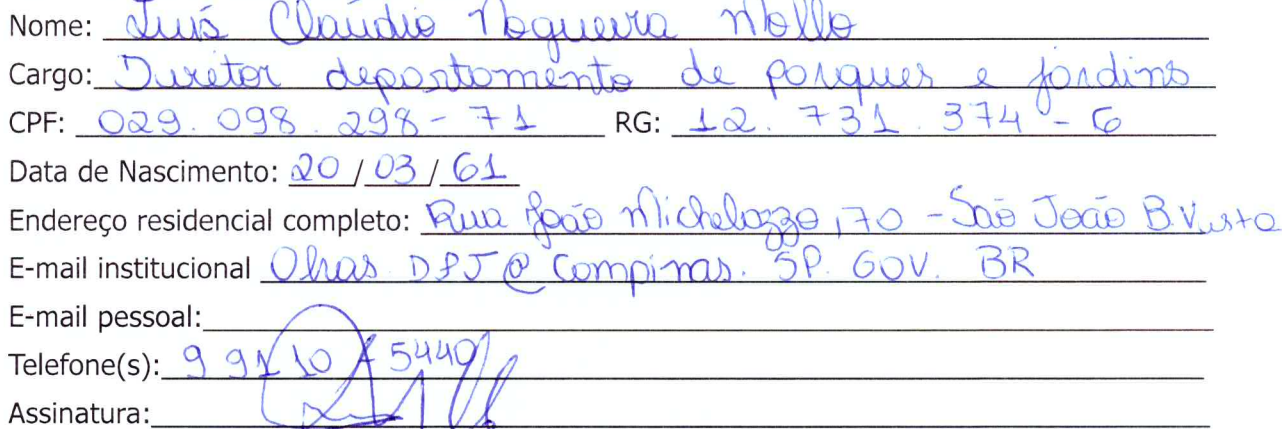 Nome: Luís Claudio Nogueira Mollo
Cargo: Diretor departamento de parques e jardins
CPF: 029.098.298-71 RG: 12.731.374-6
Data de Nascimento: 20/03/61
Endereço residencial completo: Rua João Michelazzo, 70 - São João B. Vista
E-mail institucional Obras DPJ@Campinas.SP.GOV.BR
E-mail pessoal:
Telefone(s): 9 9110 5440
Assinatura: